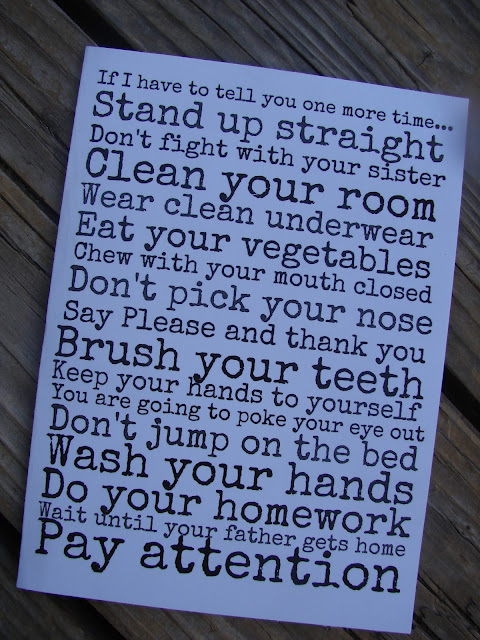 If I have to tell you one more time...
Stand up straight
Don't fight with your sister
Clean your room
Wear clean underwear
Eat your vegetables
Chew with your mouth closed
Don't pick your nose
Say Please and thank you
Brush your teeth
Keep your hands to yourself
You are going to poke your eye out
Don't jump on the bed
Wash your hands
Do your homework
Wait until your father gets home
Pay attention